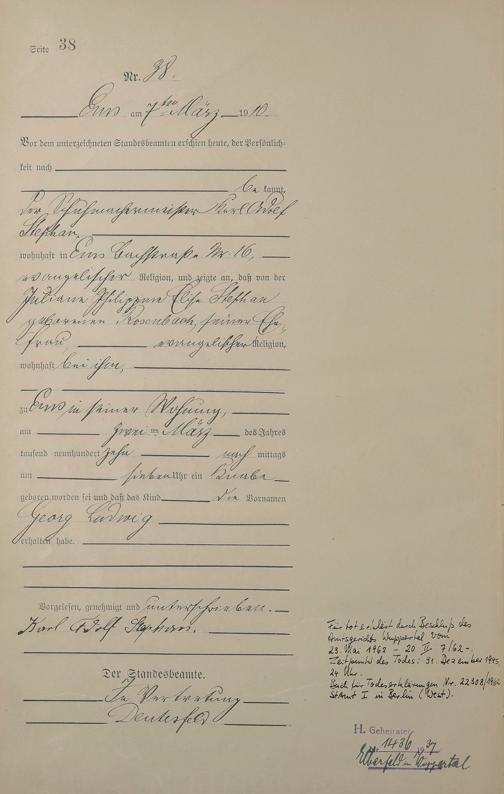 Seite 38
Nr. 38.
Ems am 7ten März 1910.
Vor dem unterzeichneten Standesbeamten erschien heute, der Persönlich-
keit nach
be kannt,
der Schuhmachermeister Karl Adolf
Stephan,
wohnhaft in Ems Bachstraße Nr 16,
evangelischer Religion, und zeigte an, daß von der
Juliane Philippine Elise Stephan
geborenen Rosenbach, seiner Ehe-
frau evangelischer Religion,
wohnhaft bei ihm,
zu Ems in seiner Wohnung,
am zwei ten März des Jahres
tausend neunhundert zehn nach mittags
um sieben Uhr ein Knabe
geboren worden sei und daß das Kind die Vornamen
Georg Ludwig
erhalten habe.
Vorgelesen, genehmigt und unterschrieben.
Karl Adolf Stephan.
Der Standesbeamte.
In Vertretung
Für tot erklärt durch Beschluß des
Amtsgerichts Wuppertal vom
23. Mai 1962 - 20 II 7/62 -.
Zeitpunkt des Todes: 31. Dezember 1945,
24 Uhr.
Buch für Todeserklärungen Nr. 22308/1962
StAmt I in Berlin (West).
H. Geheiratet
1436 1937
Elberfeld in Wuppertal